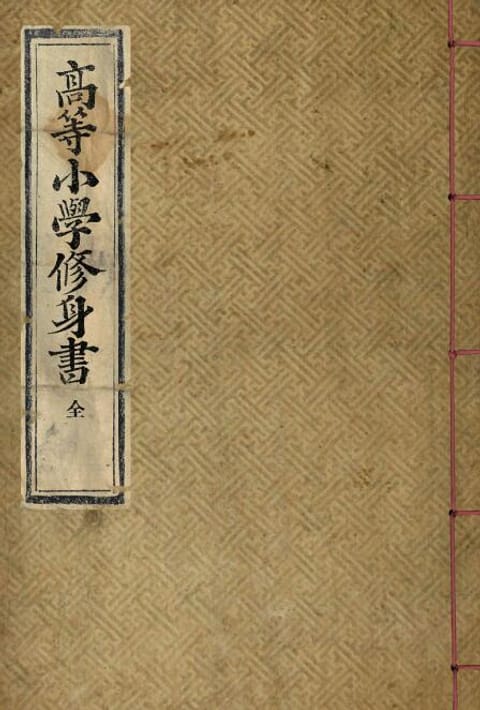 高等小學修身書
全